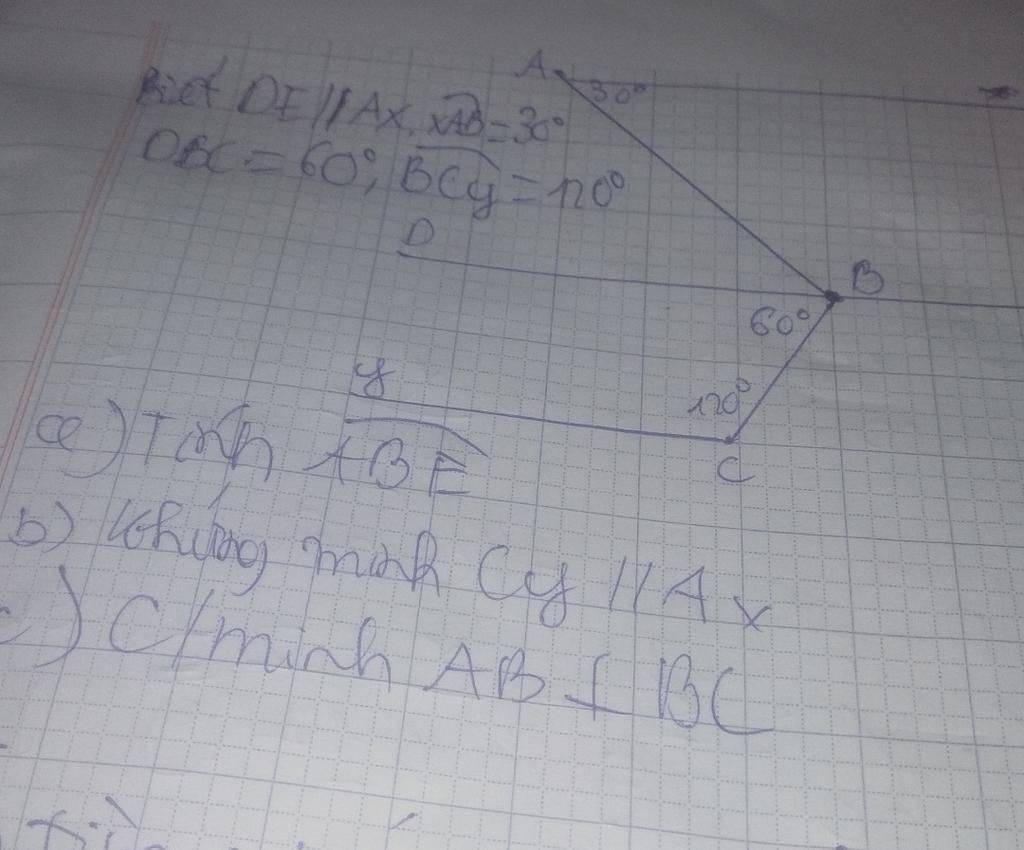 Biết DE // Ax, xAB = 30°
DBC = 60°; BCy = 120°
A
30°
x
D
B
60°
y
120°
C
a) Tính ABE
b) Chứng minh Cy // Ax
c) C/minh AB ⊥ BC